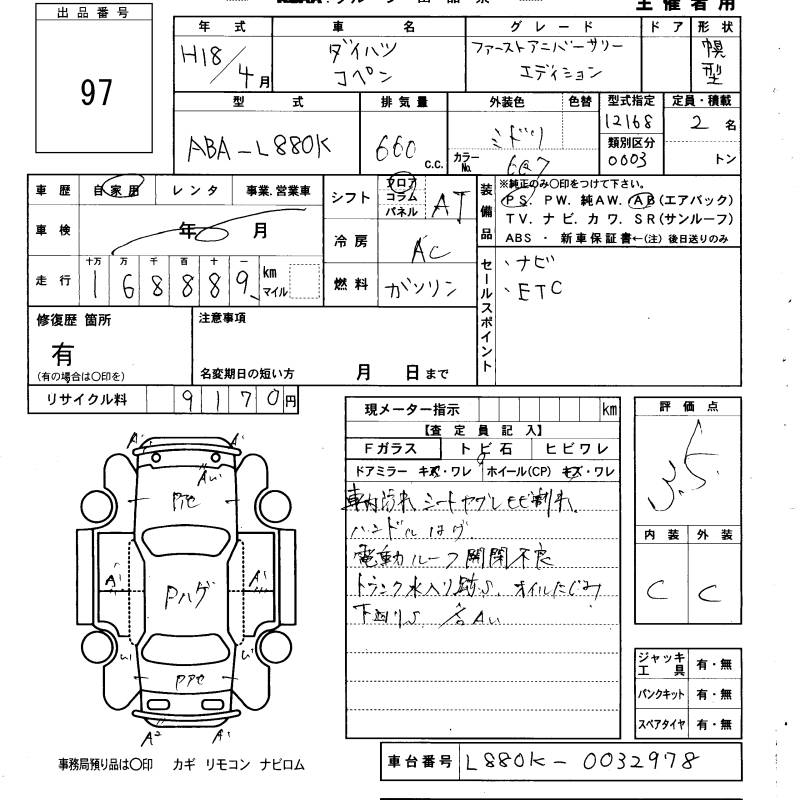 主催者用
出品番号
97
年式 車名 グレード ドア 形状
H18/4月 ダイハツ コペン ファーストアニバーサリー エディション 幌型
型式 排気量 外装色 色替 型式指定 定員・積載
ABA-L880K 660 c.c. ミドリ 12168 2名
カラーNo. 類別区分 0003 トン
車歴 自家用 レンタ 事業.営業車
車検 年 月
走行 十万 万 千 百 十 一
168889 km マイル
シフト フロア コラム パネル AT
冷房 AC
燃料 ガソリン
装備品 ※純正のみ○印をつけて下さい。
PS. PW. 純AW. AB(エアバック)
TV. ナビ. カワ. SR(サンルーフ)
ABS ・ 新車保証書←(注) 後日送りのみ
セールスポイント
・ナビ
・ETC
修復歴 箇所
有
(有の場合は○印を)
注意事項
名変期日の短い方 月 日まで
リサイクル料 9170円
現メーター指示 km
【査定員記入】
Fガラス トビ石 ヒビワレ
ドアミラー キズ・ワレ ホイール(CP) キズ・ワレ
車内汚れ シートヤブレ
ハンドルはゲ
電動ルーフ開閉不良
トランク水入り跡S. オイルにじみ
下廻りS.
評価点
3.5
内装 外装
C C
A' A'
Aしい
Pアセ
A' Pハゲ A'
Pアセ
A² A'
ジャッキ工具 有・無
パンクキット 有・無
スペアタイヤ 有・無
事務局預り品は○印 カギ リモコン ナビロム
車台番号 L880K-0032978